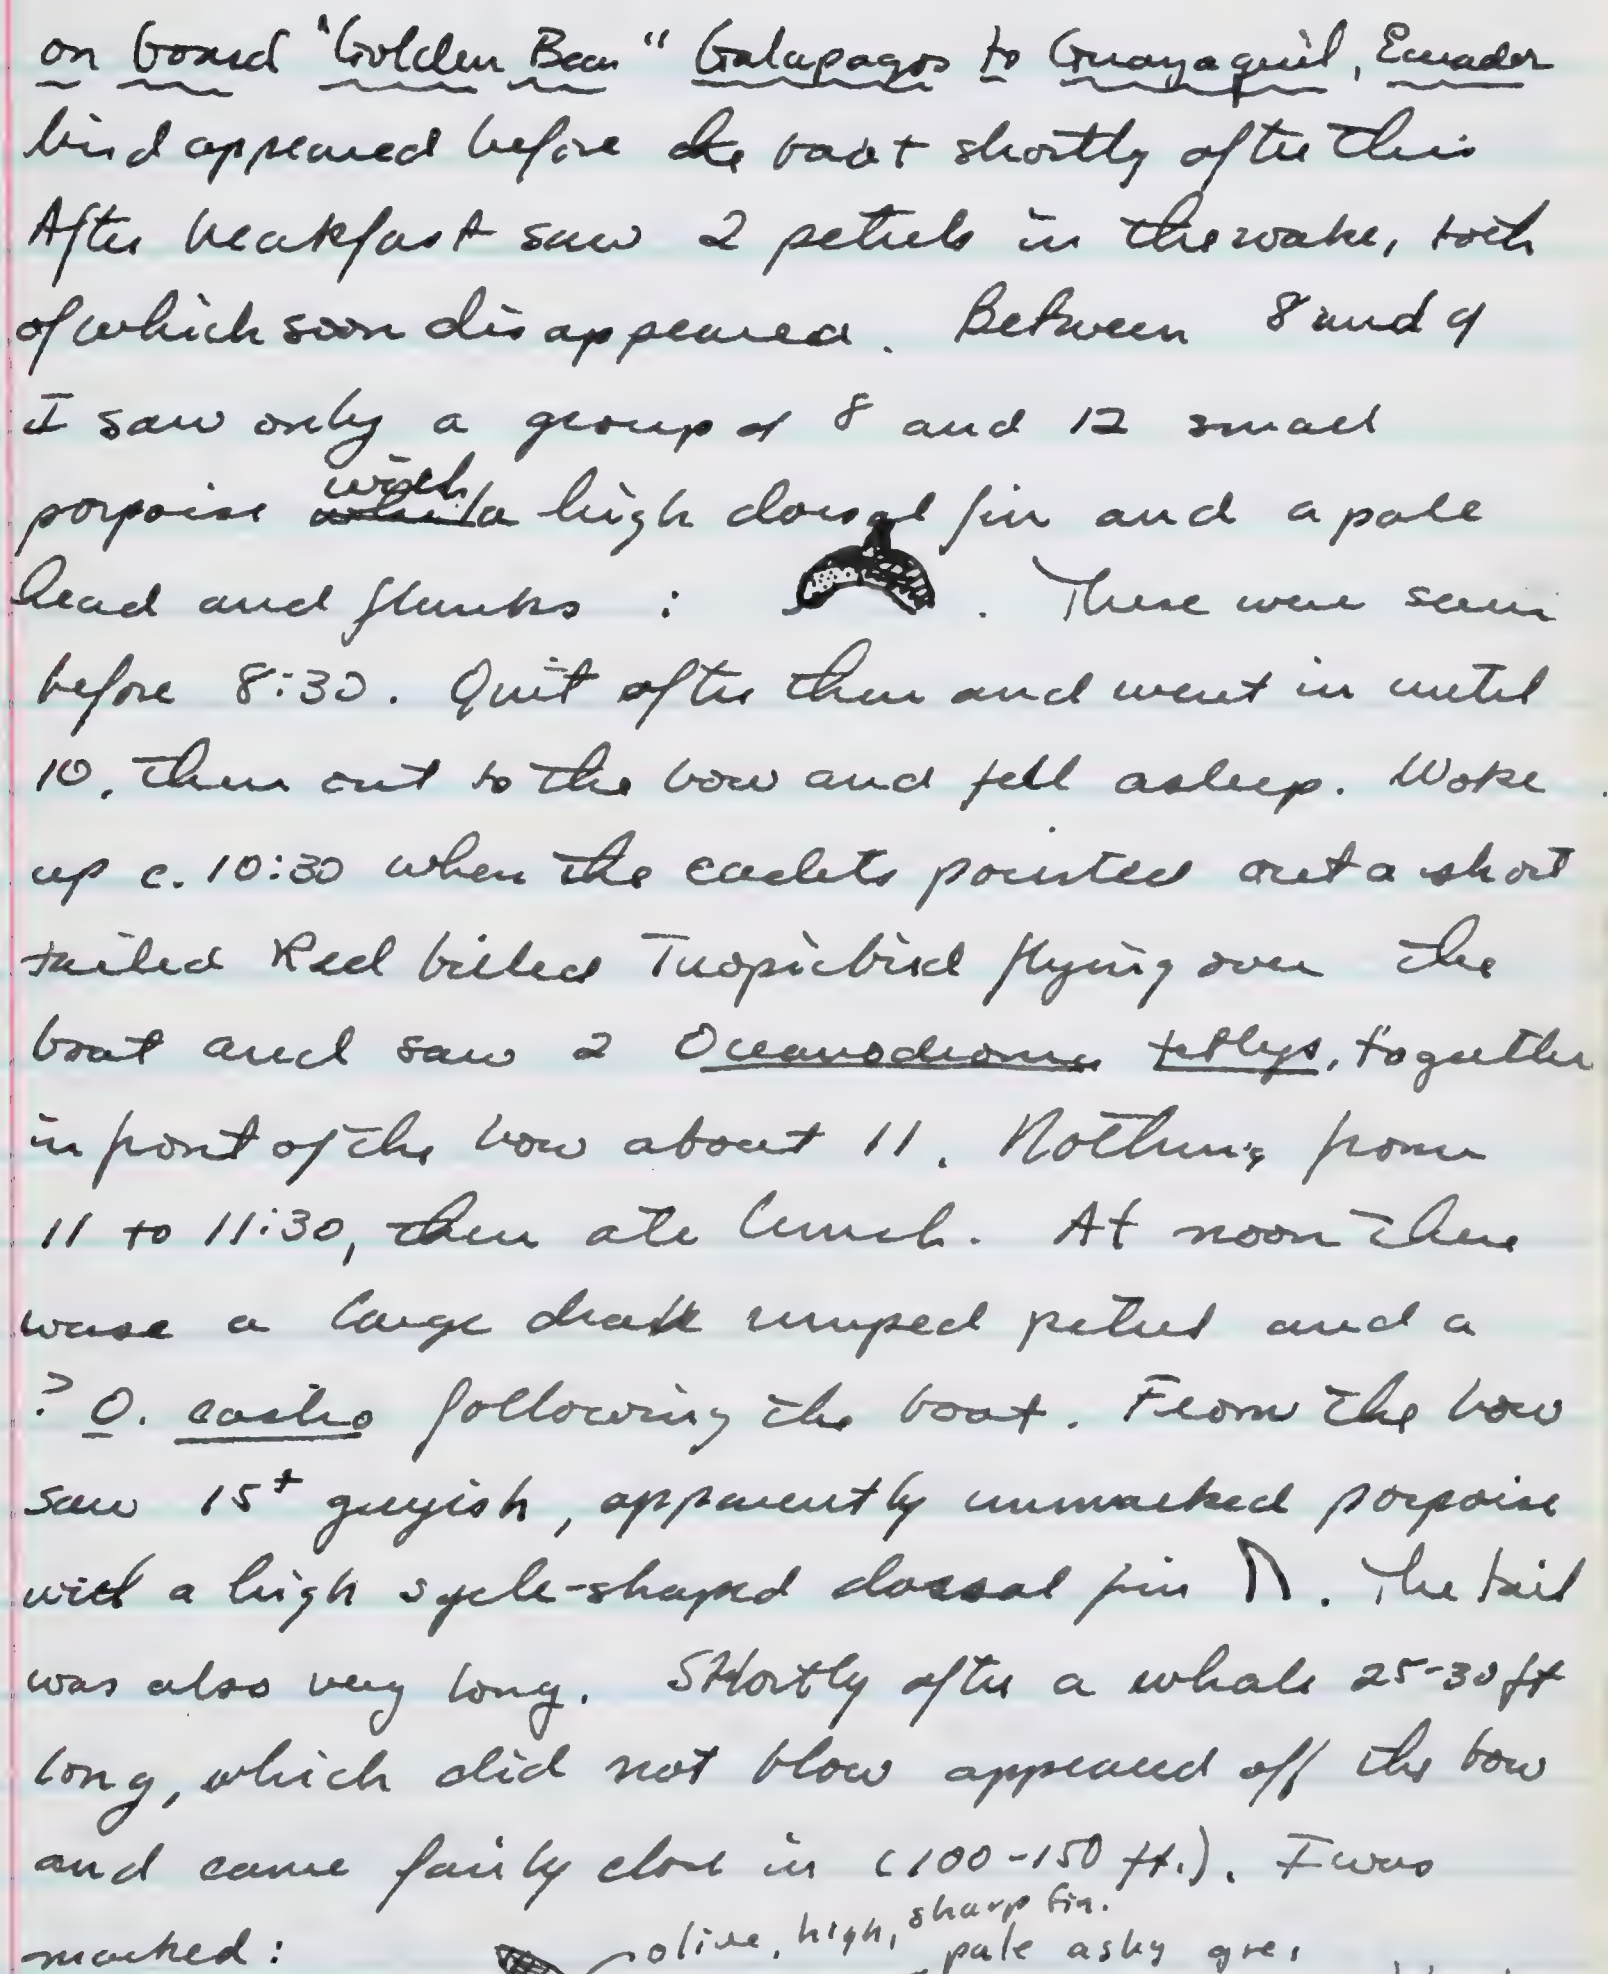 on board "Golden Bear" Galapagos to Guayaquil, Ecuador
bird appeared before the boat shortly after this
After breakfast saw 2 petrels in the wake, both
of which soon disappeared. Between 8 and 9
I saw only a group of 8 and 12 small
porpoise with a high dorsal fin and a pale
head and flanks : . These were seen
before 8:30. Quit after then and went in until
10, then out to the bow and fell asleep. Woke
up c. 10:30 when the cadets pointed out a short
tailed Red billed Tropicbird flying over the
boat and saw 2 Oceanodroma tethys, together
in front of the bow about 11. Nothing from
11 to 11:30, then ate lunch. At noon there
was a large dark rumped petrel and a
? O. castro following the boat. From the bow
saw 15+ greyish, apparently unmarked porpoise
with a high sycle-shaped dorsal fin . The tail
was also very long. Shortly after a whale 25-30 ft
long, which did not blow appeared off the bow
and came fairly close in (100-150 ft.). I was
marked:
olive, high, sharp fin.
pale ashy